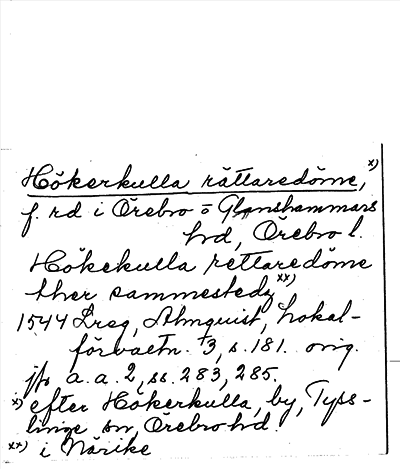 Hökerkulla rättaredöme, x)
f. rd i Örebro o Glanshammars
hd, Örebro l.
Hökekulla rettaredöme
ther sammestedz xx)
1544 Lreg, Almquist, Lokal-
förvaltn. 3, s. 181. orig.
jfr a. a. 2, ss. 283, 285.
x) efter Hökerkulla, by, Tyss-
linge sn, Örebro hd.
xx) i Närike